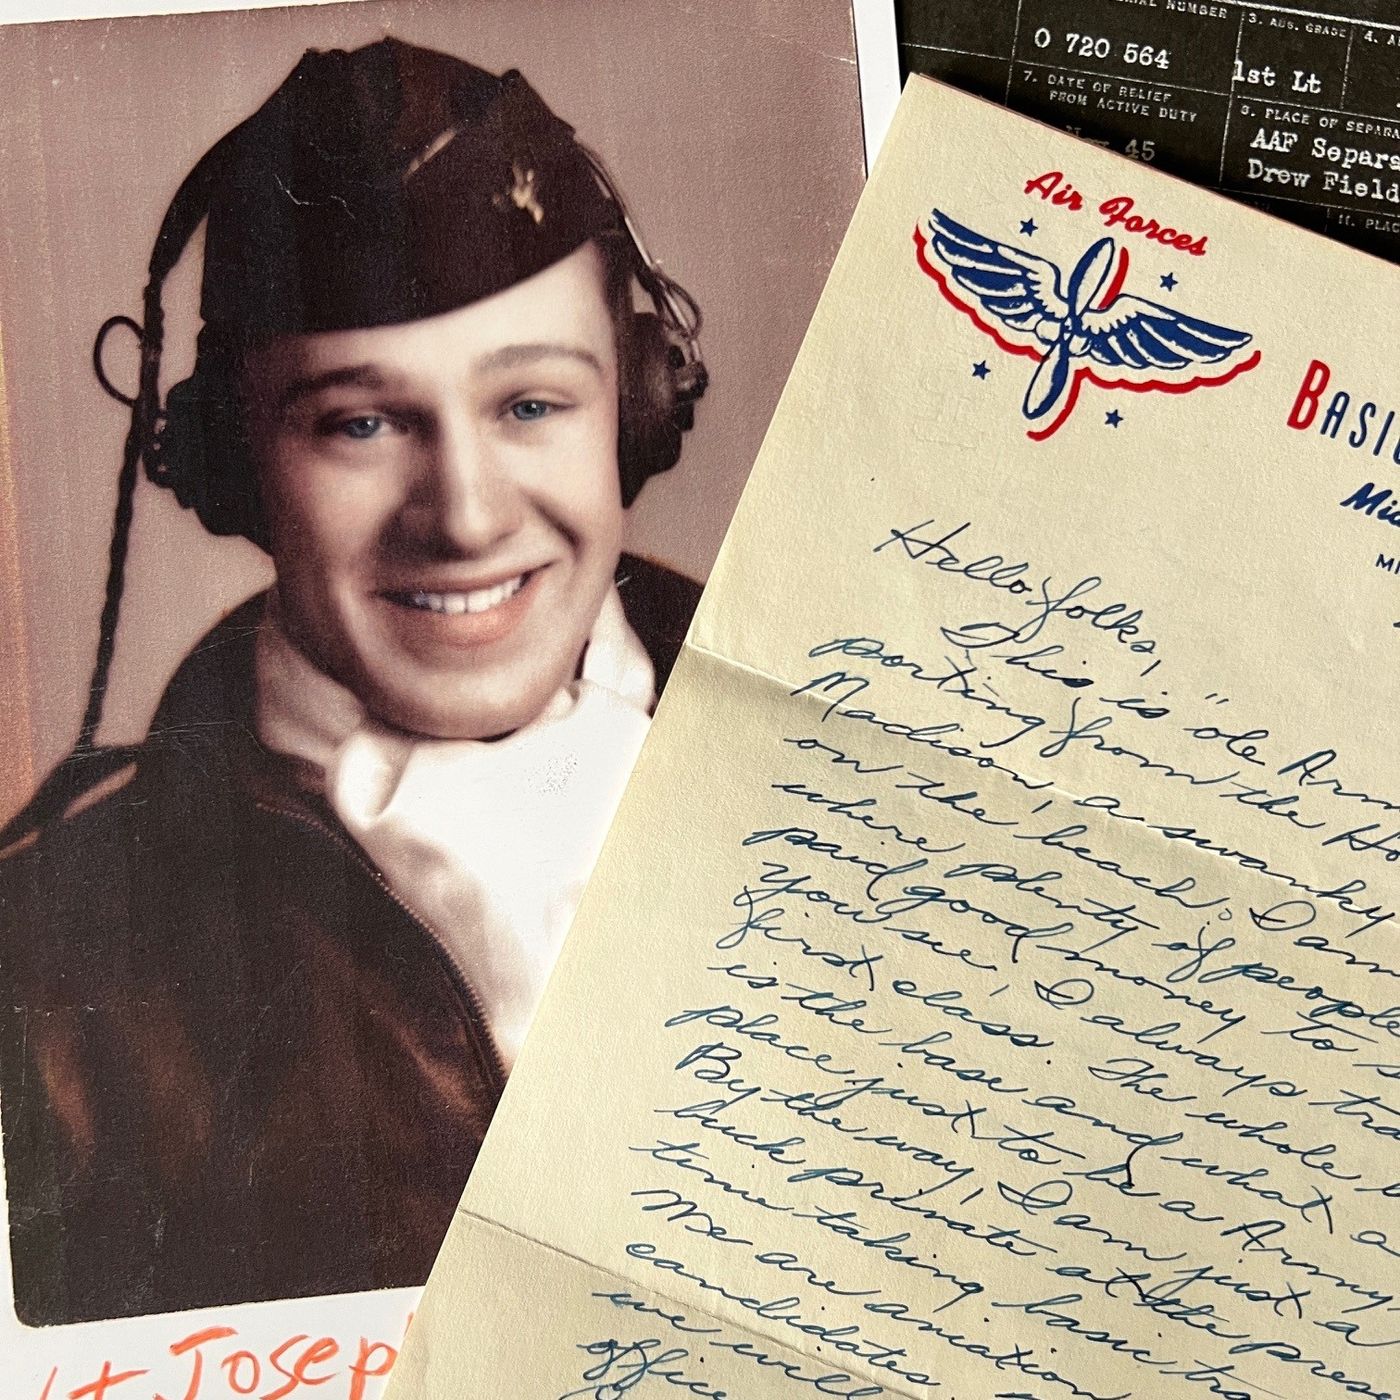 SERIAL NUMBER
3. AUS. GRADE
4. A
O 720 564
1st Lt
7. DATE OF RELIEF
FROM ACTIVE DUTY
45
8. PLACE OF SEPARA
AAF Separa
Drew Field
11. PLAC
Air Forces
BASIC
Mi
MI
Hello folks,
This is "ole Arm
porting from the Ho
Madison, a swanky
on the beach. I am
where plenty of people
paid good money to s
You see, I always tra
first class. The whole b
is the base and what a
place just to be a Army
By the way, I am just a
buck private at the pres
time taking basic tr
We are aviation
candidates.
we will
office
Lt Joseph